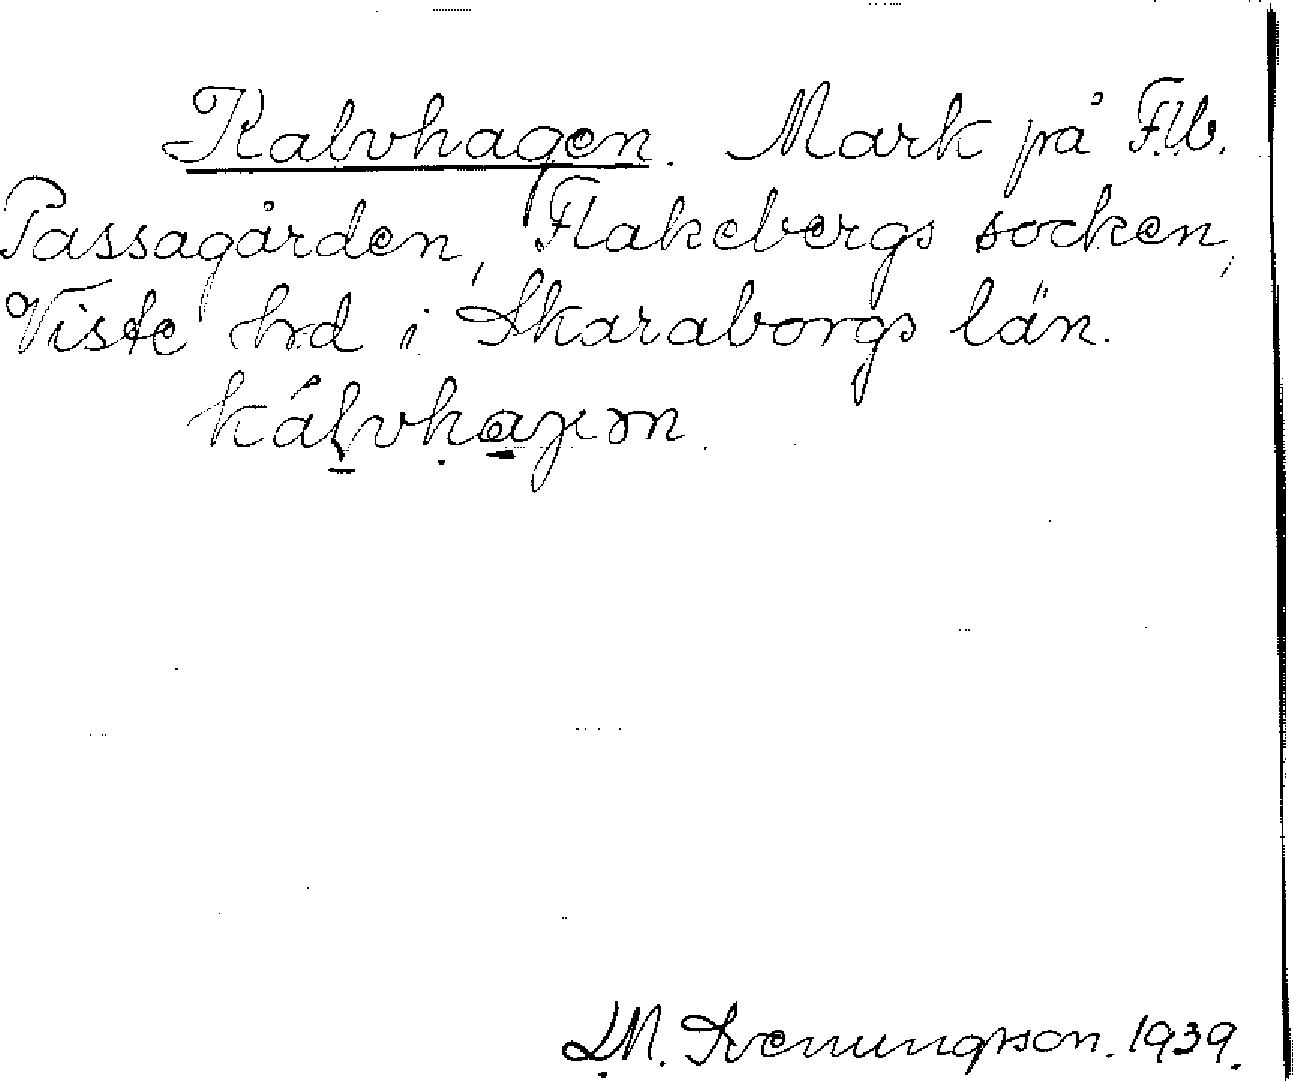 Kalvhagen. Mark på F.U.
Passagården, Flakebergs socken,
Viste hrd i Skaraborgs län.
kálvhaɣən
D.N. Svenungsson. 1939.